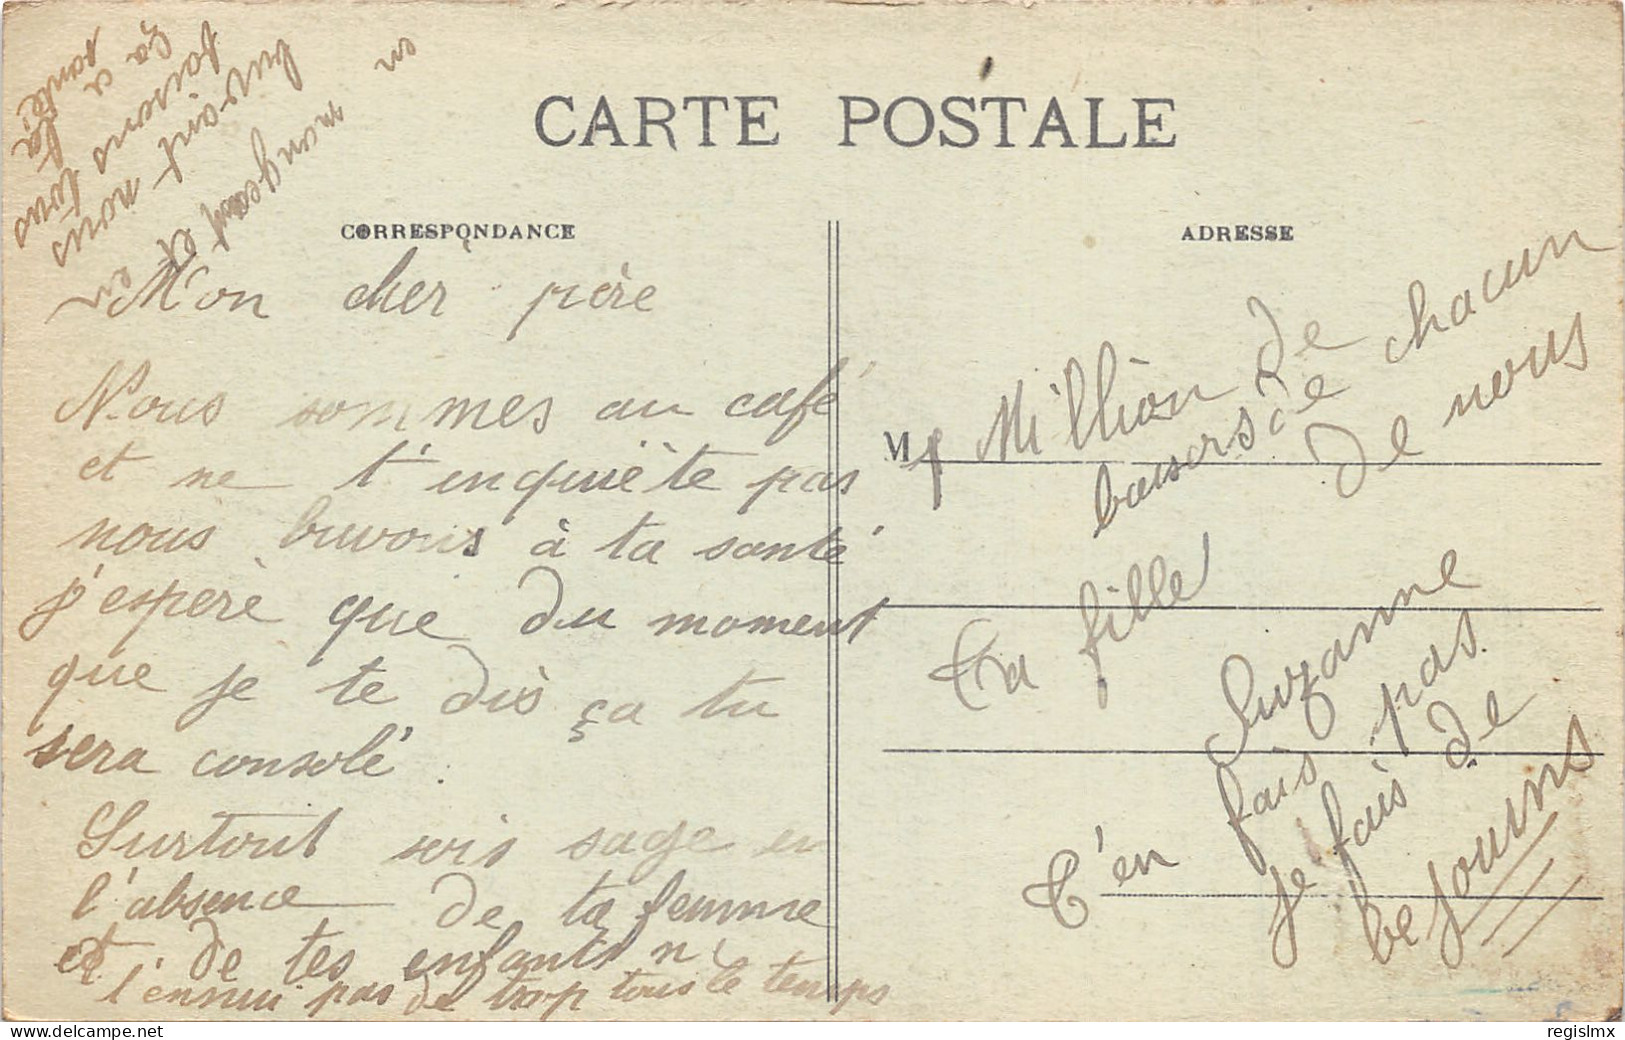 CARTE POSTALE
CORRESPONDANCE
ADRESSE
M
Mon cher père
Nous sommes au café
et ne t'inquiète pas
nous buvons à ta santé
j'espère que du moment
que je te dis ça tu
sera consolé.
Surtout sois sage en
l'absence de ta femme
et de tes enfants n
t'ennui pas de trop tous le temps
en
mangeant et en
buvant nous
faisons tous
ça a la
santé
1 Million de
baisers de chacun
de nous
Ta fille
Suzanne
T'en fais pas
je fais de
be journs
regislmx
delcampe.net